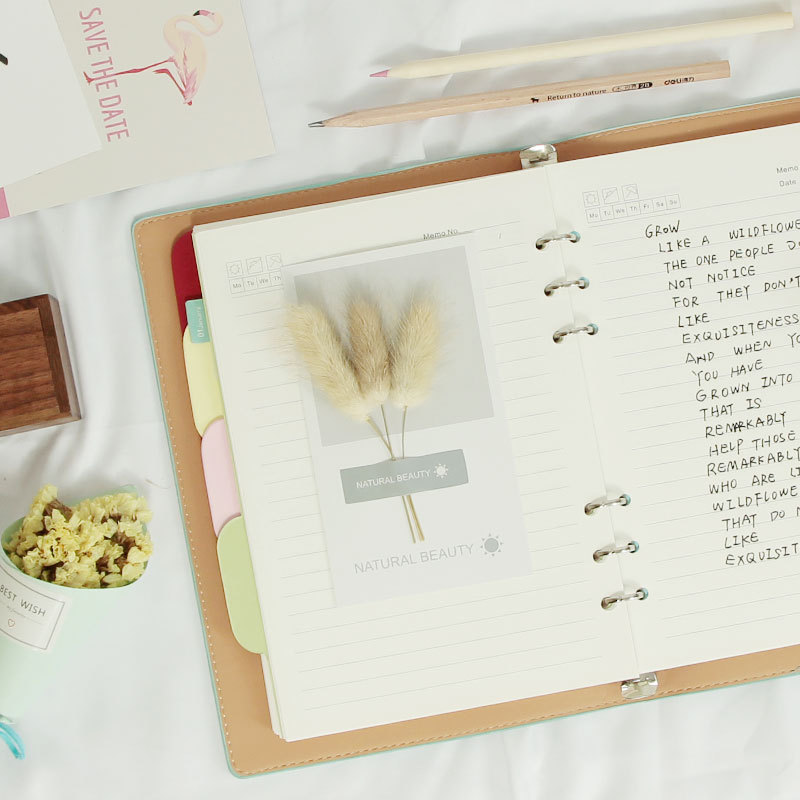 SAVE THE DATE
Return to nature 2B deli
Memo No.
Mo Tu We Th
01 January
NATURAL BEAUTY
NATURAL BEAUTY
Memo
Date
Mo Tu We Th Fr Sa Su
GROW
LIKE A WILDFLOWE
THE ONE PEOPLE DO
NOT NOTICE
FOR THEY DON'T
LIKE
EXQUISITENESS
AND WHEN YO
YOU HAVE
GROWN INTO
THAT IS
REMARKABLY
HELP THOSE
REMARKABLY
WHO ARE LI
WILDFLOWE
THAT DO N
LIKE
EXQUISIT
BEST WISH